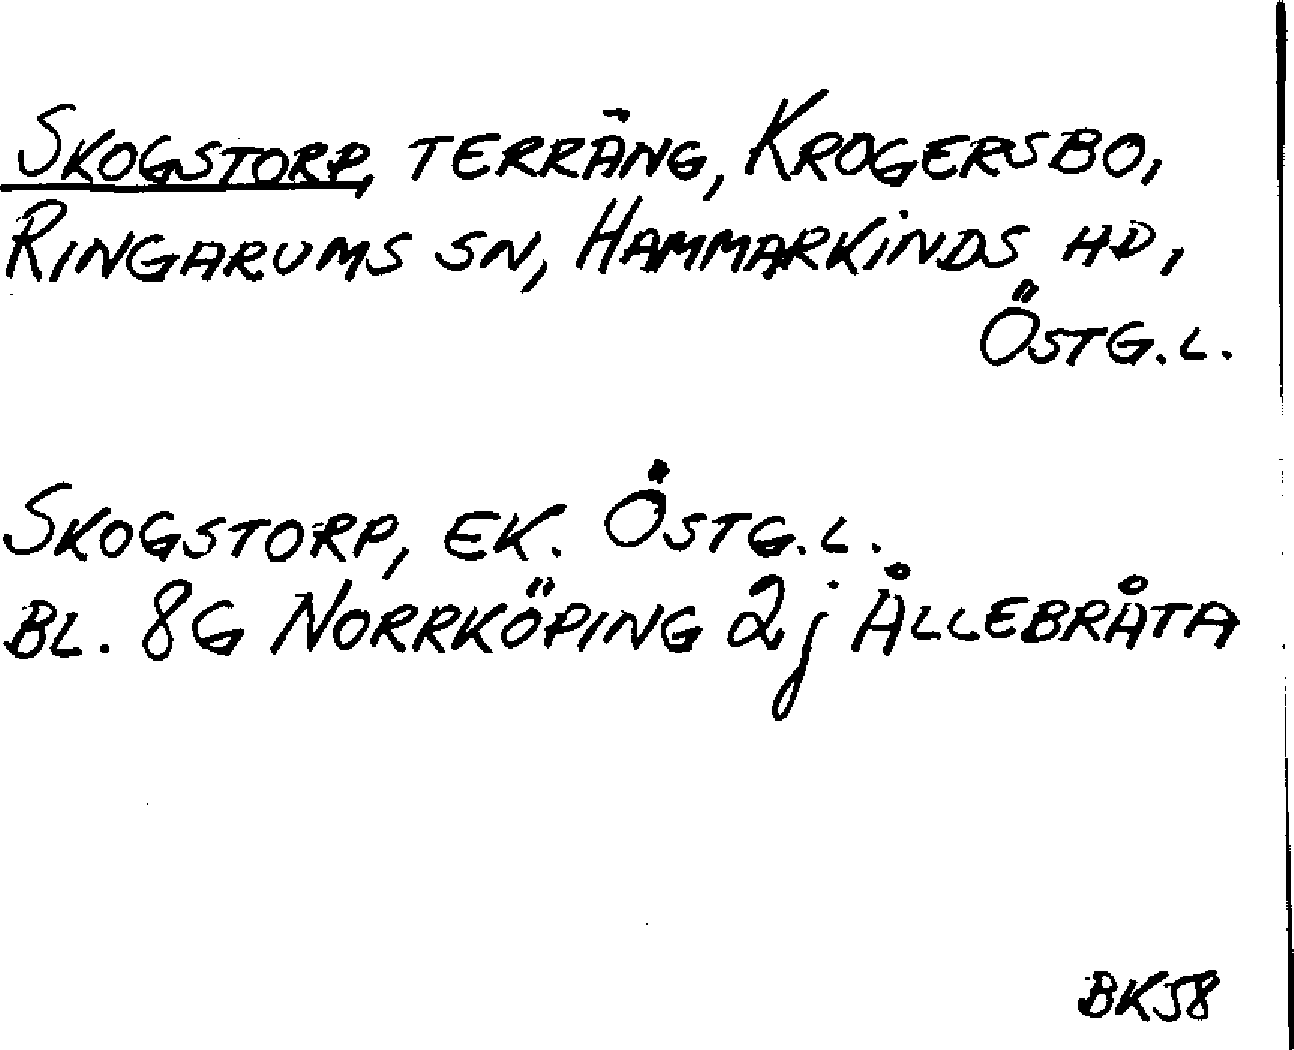 Skogstorp, terräng, Krogersbo,
Ringarums sn, Hammarkinds hd,
Östg.l.
Skogstorp, ek. Östg.l.
bl. 8G Norrköping 2j Ållebråta
BK58